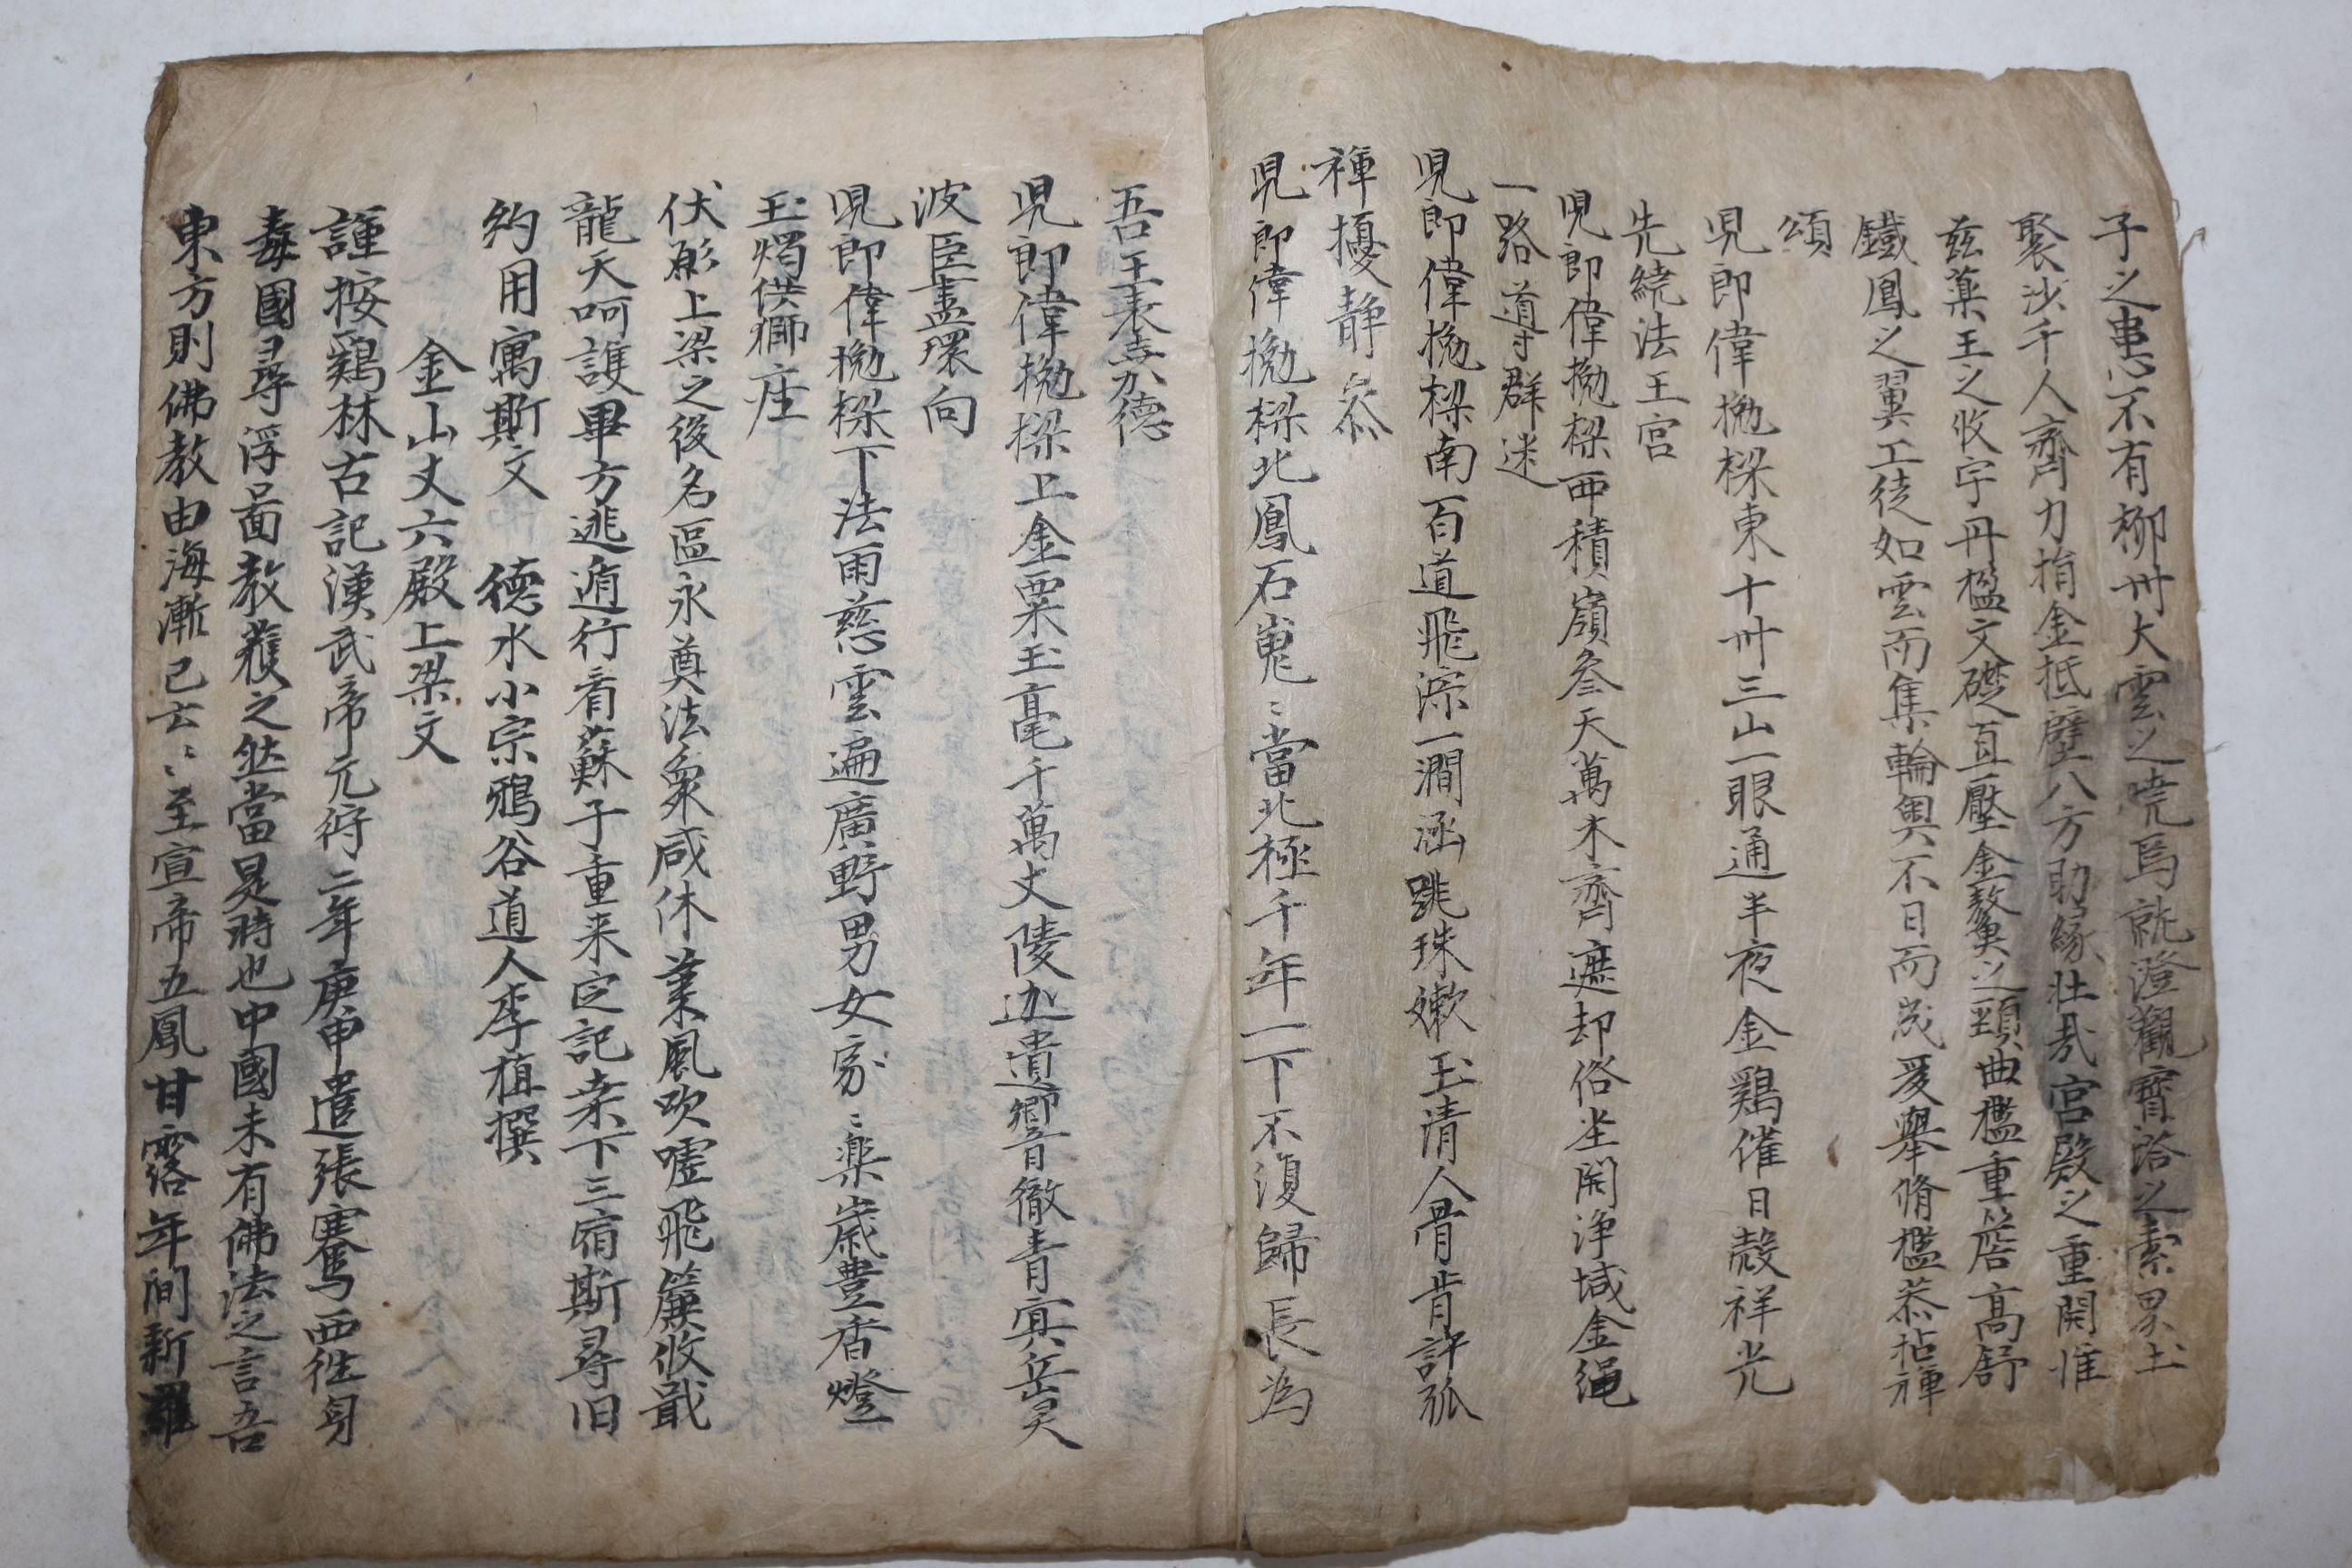 子之患不有柳州大雲之曉焉就澄觀寶塔之素累土
聚沙千人齊力捐金抵壁八方助緣壮㢤宮殿之重開惟
玆藥王之攸宇丹楹文礎直壓金鰲之頭曲檻重簷高舒
鐵鳳之翼工徒如雲而集輪奐不日而成爰擧脩樑恭拈禅
頌
児郎偉抛樑東十卅三山一眼通半夜金鷄催日殼祥光
先繞法王宮
児郎偉抛樑西積嶺叅天萬木齊遮却俗坐開浄域金繩
一路導群迷
児郎偉抛樑南百道飛淙一澗涵跳珠嫩玉清人骨肯許孤
禅擾静叅
児郎偉抛樑北鳳石嵬〻當北極千年一下不復歸長為
吾王表喜德
児郎偉抛樑上金粟玉毫千萬丈陵迦遺響音徹青㝠岳灵
波臣盡環向
児郎偉抛樑下法雨慈雲遍廣野男女家〻樂歲豊香燈
玉燭供獅座
伏願上梁之後名區永奠法衆咸休業風吹噓飛簾攸戢
龍天呵護畢方逃遁行看蘇子重来定記桒下三宿斯尋旧
約用寓斯文 德水小宗鴉谷道人李植撰
金山丈六殿上梁文
謹按鷄林古記漢武帝元符二年庚申遣張騫西徃身
毒國尋浮啚教蕟之然當是時也中國未有佛法之言吾
東方則佛教由海漸已去〻至宣帝五鳳甘露年间新羅